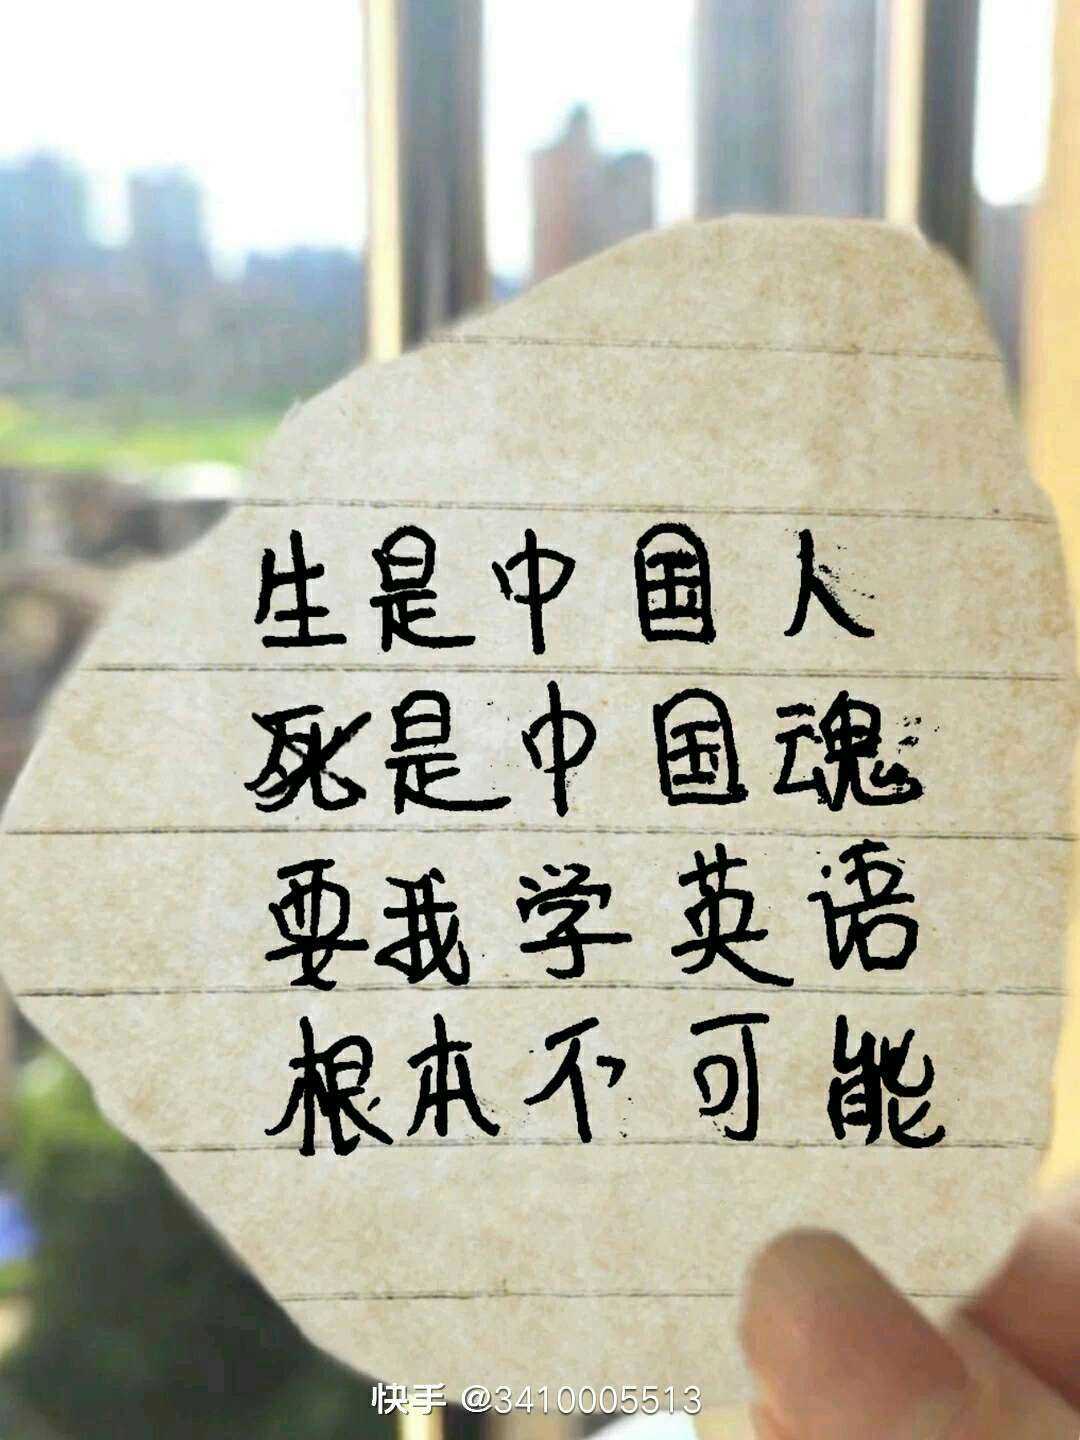 生是中国人
死是中国魂
要我学英语
根本不可能
快手 @3410005513